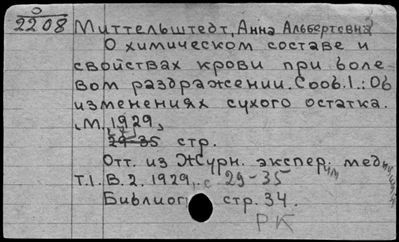 О
2208 Миттельштедт, Анна Альбертовна
О химическом составе и
свойствах крови при боле-
вом раздражении. Сооб. 1.: Об
изменениях сухого остатка.
М., 1929,
29-35 стр.
Отт. из Журн. экспер. мед
Т.1. В.2. 1929, с 29-35
Библиог стр. 34.
РК